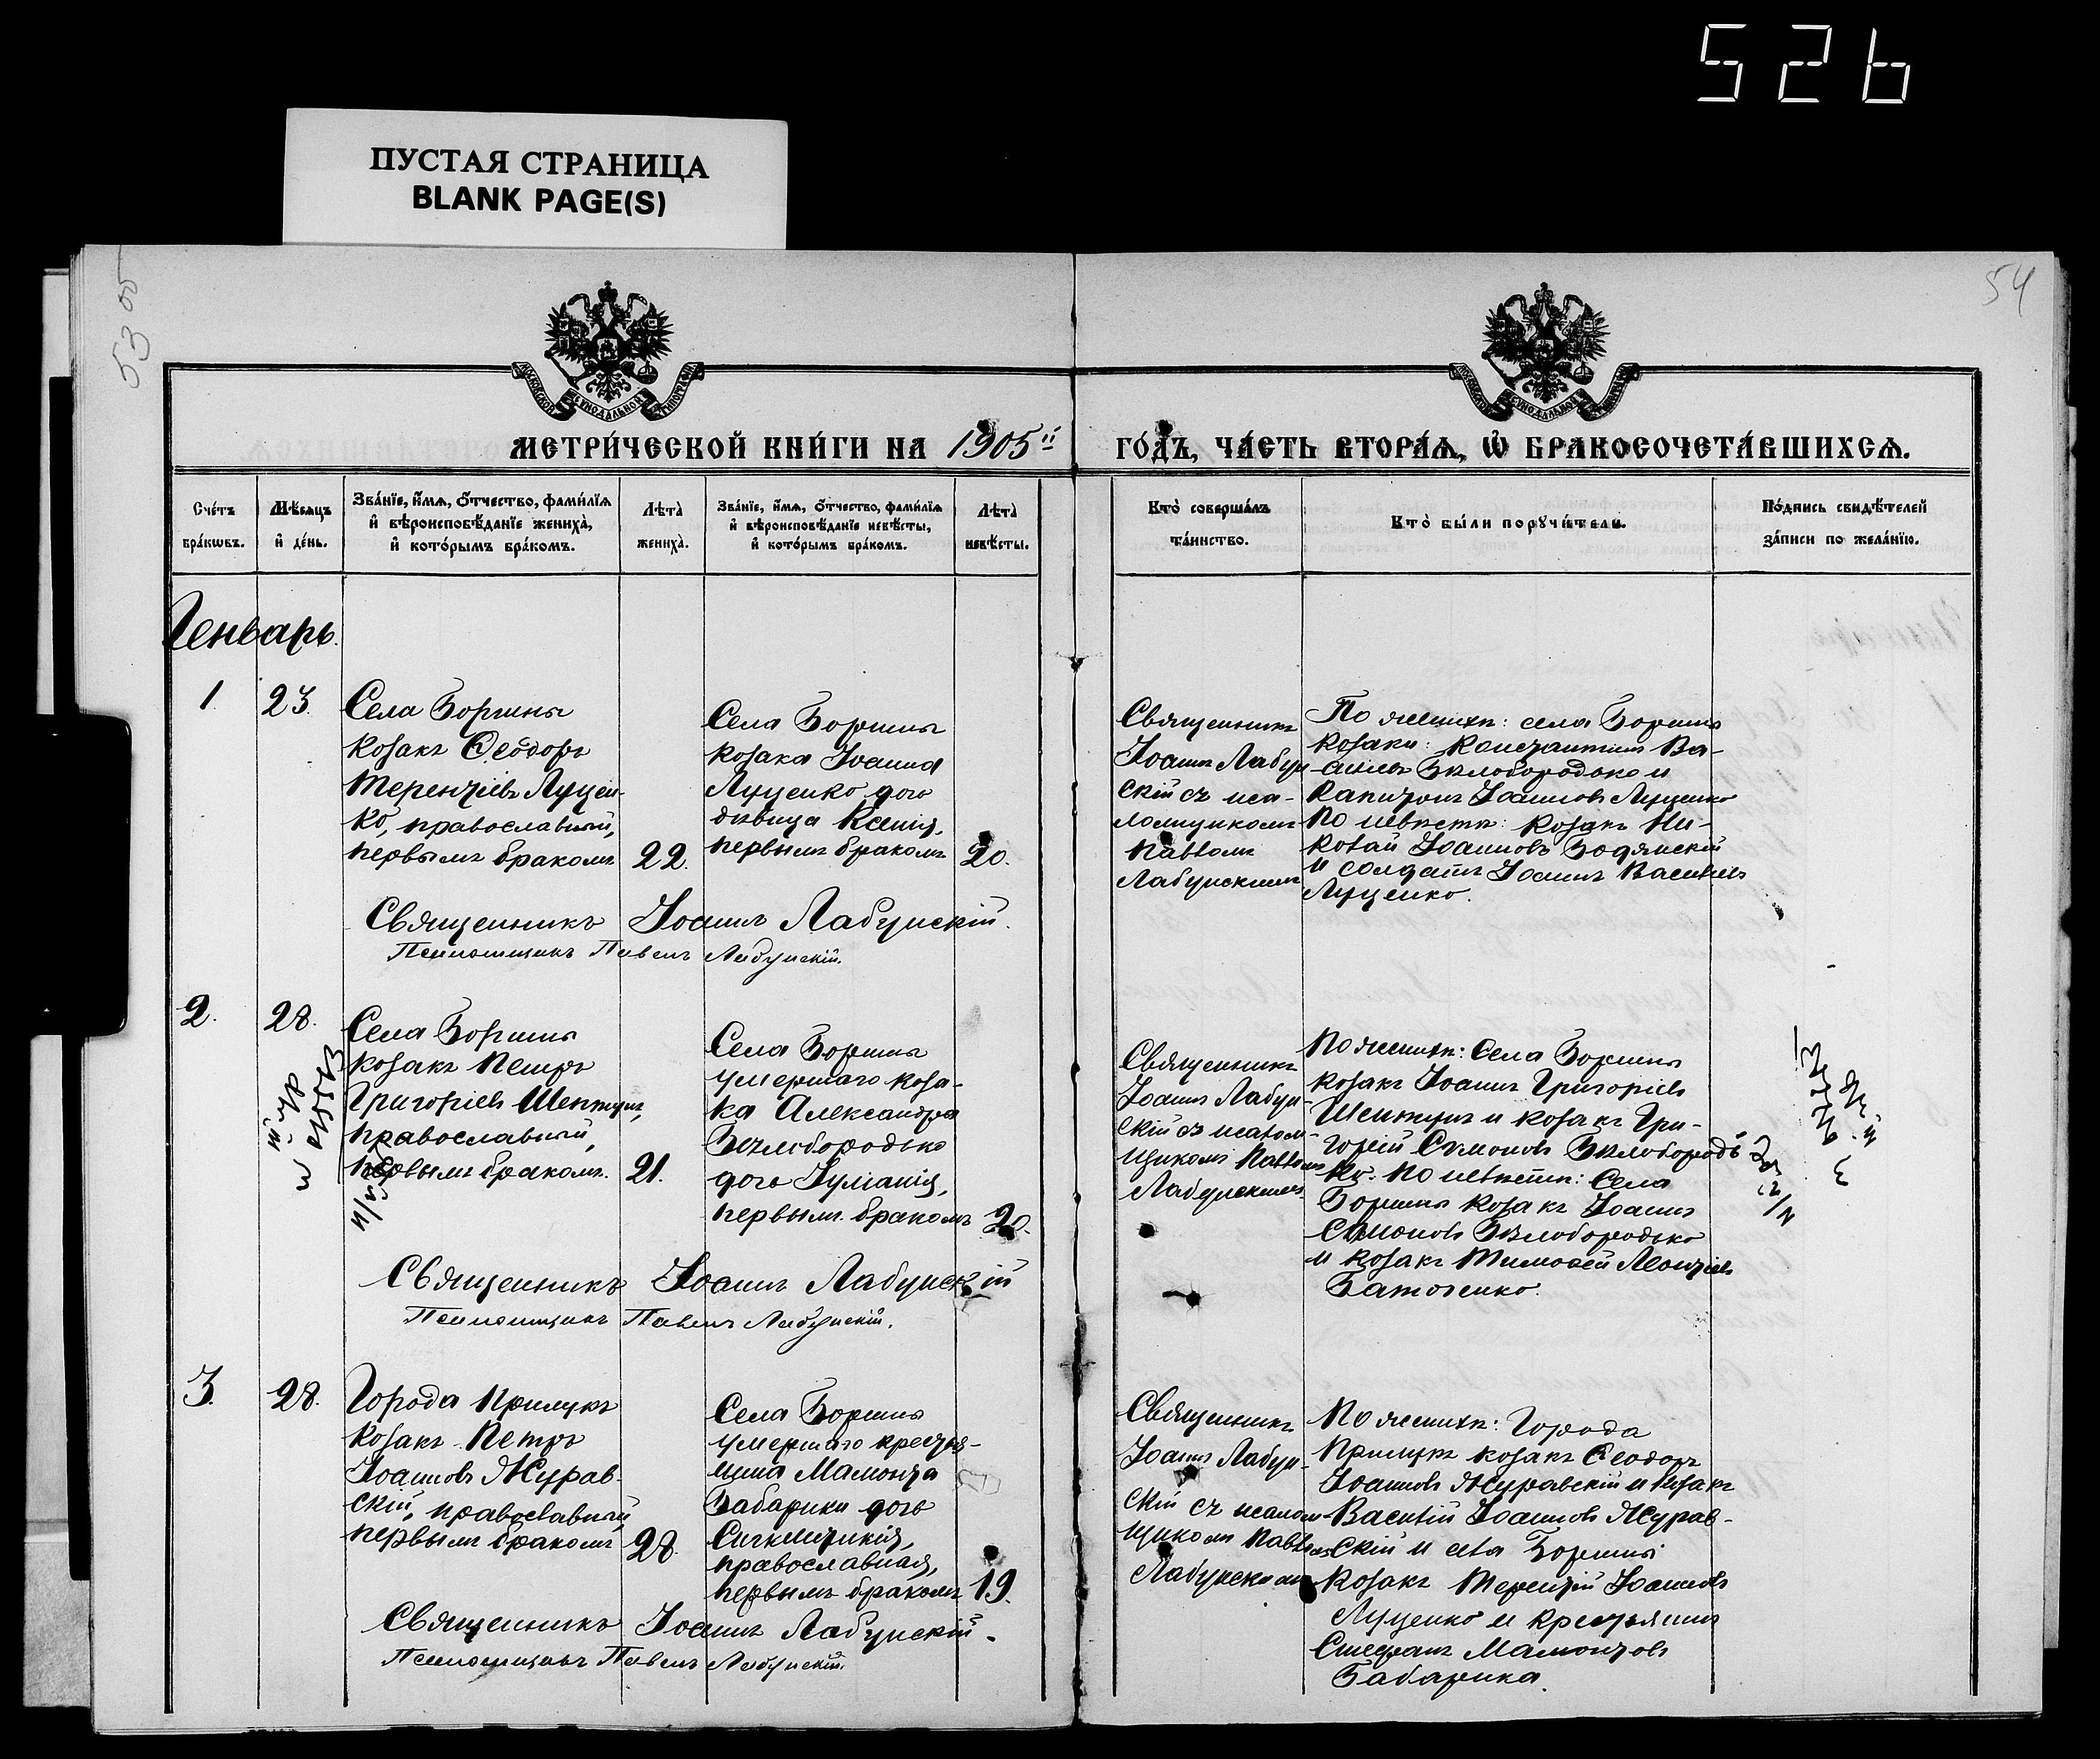 526
ПУСТАЯ СТРАНИЦА
BLANK PAGE(S)
53 об
54
МЕТРИ́ЧЕСКОЙ КНИ́ГИ НА 1905й ГО́ДЪ, ЧА́СТЬ ВТОРА́Ѧ, Ѽ БРАКОСОЧЕТА́ВШИХСѦ.
Сче́тъ бра́кѡвъ.
Мѣ́сяцъ и҆ де́нь.
Зва́нїе, и҆́мѧ, ѻ҆́тчество, фами́лїѧ
и҆ вѣроисповѣ́данїе жениха̀,
и҆ кото́рымъ бра́комъ.
Лѣта̀ жениха̀.
Зва́нїе, и҆́мѧ, ѻ҆́тчество, фами́лїѧ
и҆ вѣроисповѣ́данїе невѣ́сты,
и҆ кото́рымъ бра́комъ.
Лѣта̀ невѣ́сты.
Кто̀ соверша́лъ
та́инство.
Кто̀ бы́ли порꙋчи́тели.
По́дпись свидѣ́телей
за́писи по жела́нїю.
Генварь.
1.
23.
Села Боршны
козакъ Ѳеодоръ
Терентіевъ Луцен-
ко, православный,
первымъ бракомъ
22.
Села Боршны
козака Іоанна
Луценко дочь
дѣвица Ксенія,
первымъ бракомъ
20.
Священникъ
Іоаннъ Лабун
скій съ пса-
ломщикомъ
Павломъ
Лабунскимъ
По женихѣ: села Боршны
козаки: Константинъ Ва-
сильевъ Бѣлобородько и
Капитонъ Іоанновъ Луценко
По невѣстѣ: козакъ Ни-
колай Іоанновъ Бодянскій
и солдатъ Іоаннъ Васильевъ
Луценко.
Священникъ Іоаннъ Лабунскій.
Псаломщикъ Павелъ Лабунскій.
2.
28.
Села Боршны
козакъ Петръ
Григоріевъ Шептунъ,
православный,
первымъ бракомъ.
21.
Села Боршны
умершаго коза-
ка Александра
Бѣлобородько
дочь Іуліанія,
первымъ бракомъ
20.
Священникъ
Іоаннъ Лабун-
скій съ псалом-
щикомъ Павломъ
Лабунскимъ.
По женихѣ: Села Боршны
козакъ Іоаннъ Григоріевъ
Шептунъ и козакъ Гри-
горій Симоновъ Бѣлобородь
ко. По невѣстѣ: Села
Боршны козакъ Іоаннъ
Симоновъ Бѣлобородько
и козакъ Тимоѳей Леонтіевъ
Священникъ Іоаннъ Лабунскій
Псаломщикъ Павелъ Лабунскій.
3.
28.
Города Прилукъ
козакъ Петръ
Іоанновъ Журав-
скій, православный,
первымъ бракомъ
28.
Села Боршны
умершаго крестья-
нина Мамонта
Бабарики дочь
православная,
первымъ бракомъ
19.
Священникъ
Іоаннъ Лабун-
скій съ псалом-
щикомъ Павломъ
Лабунскимъ
По женихѣ: Города
Прилукъ козакъ Ѳеодоръ
Іоанновъ Журавскій и козакъ
Василій Іоанновъ Журав-
скій и села Боршны
козакъ Терентій Іоанновъ
Луценко и крестьянинъ
Стефанъ Мамонтовъ
Бабарика.
Священникъ Іоаннъ Лабунскій.
Псаломщикъ Павелъ Лабунскій.